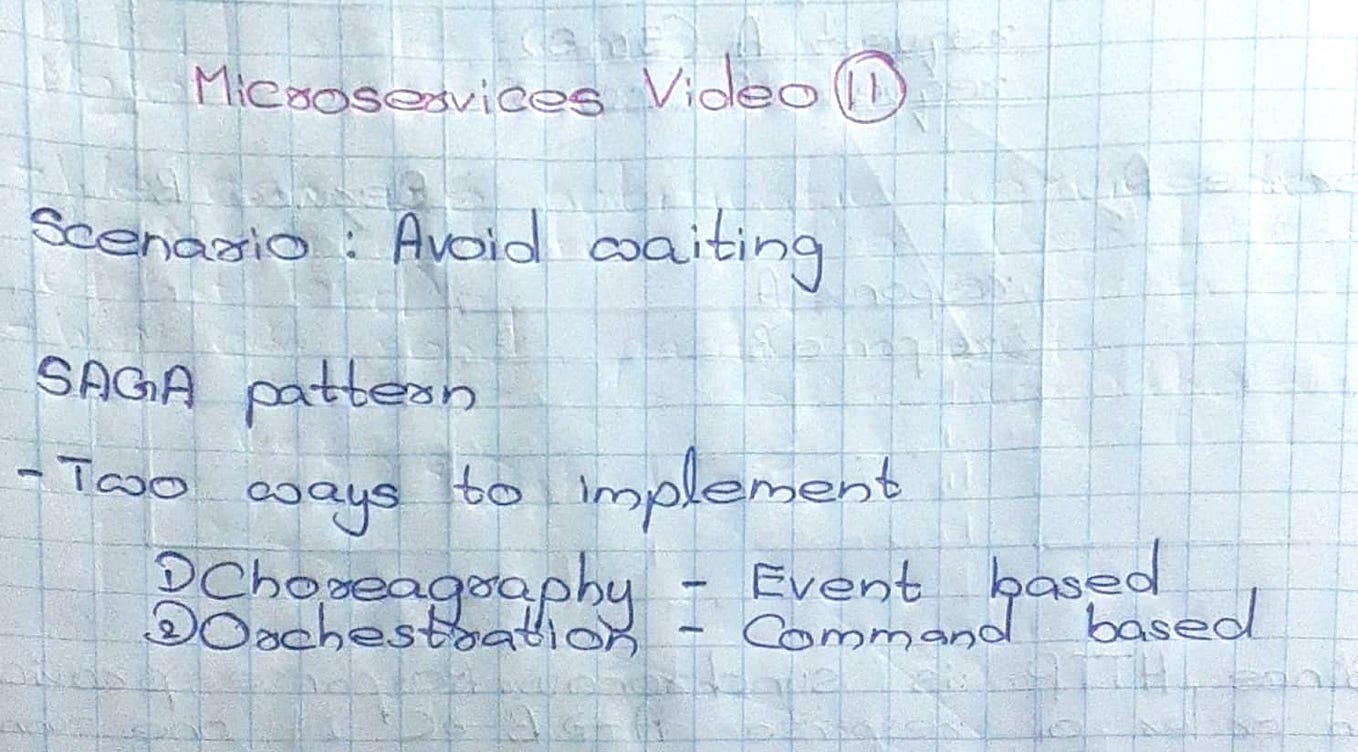 Microservices Video 11
Scenario : Avoid waiting
SAGA pattern
- Two ways to implement
1) Choreagraphy - Event based
2) Orchestration - Command based